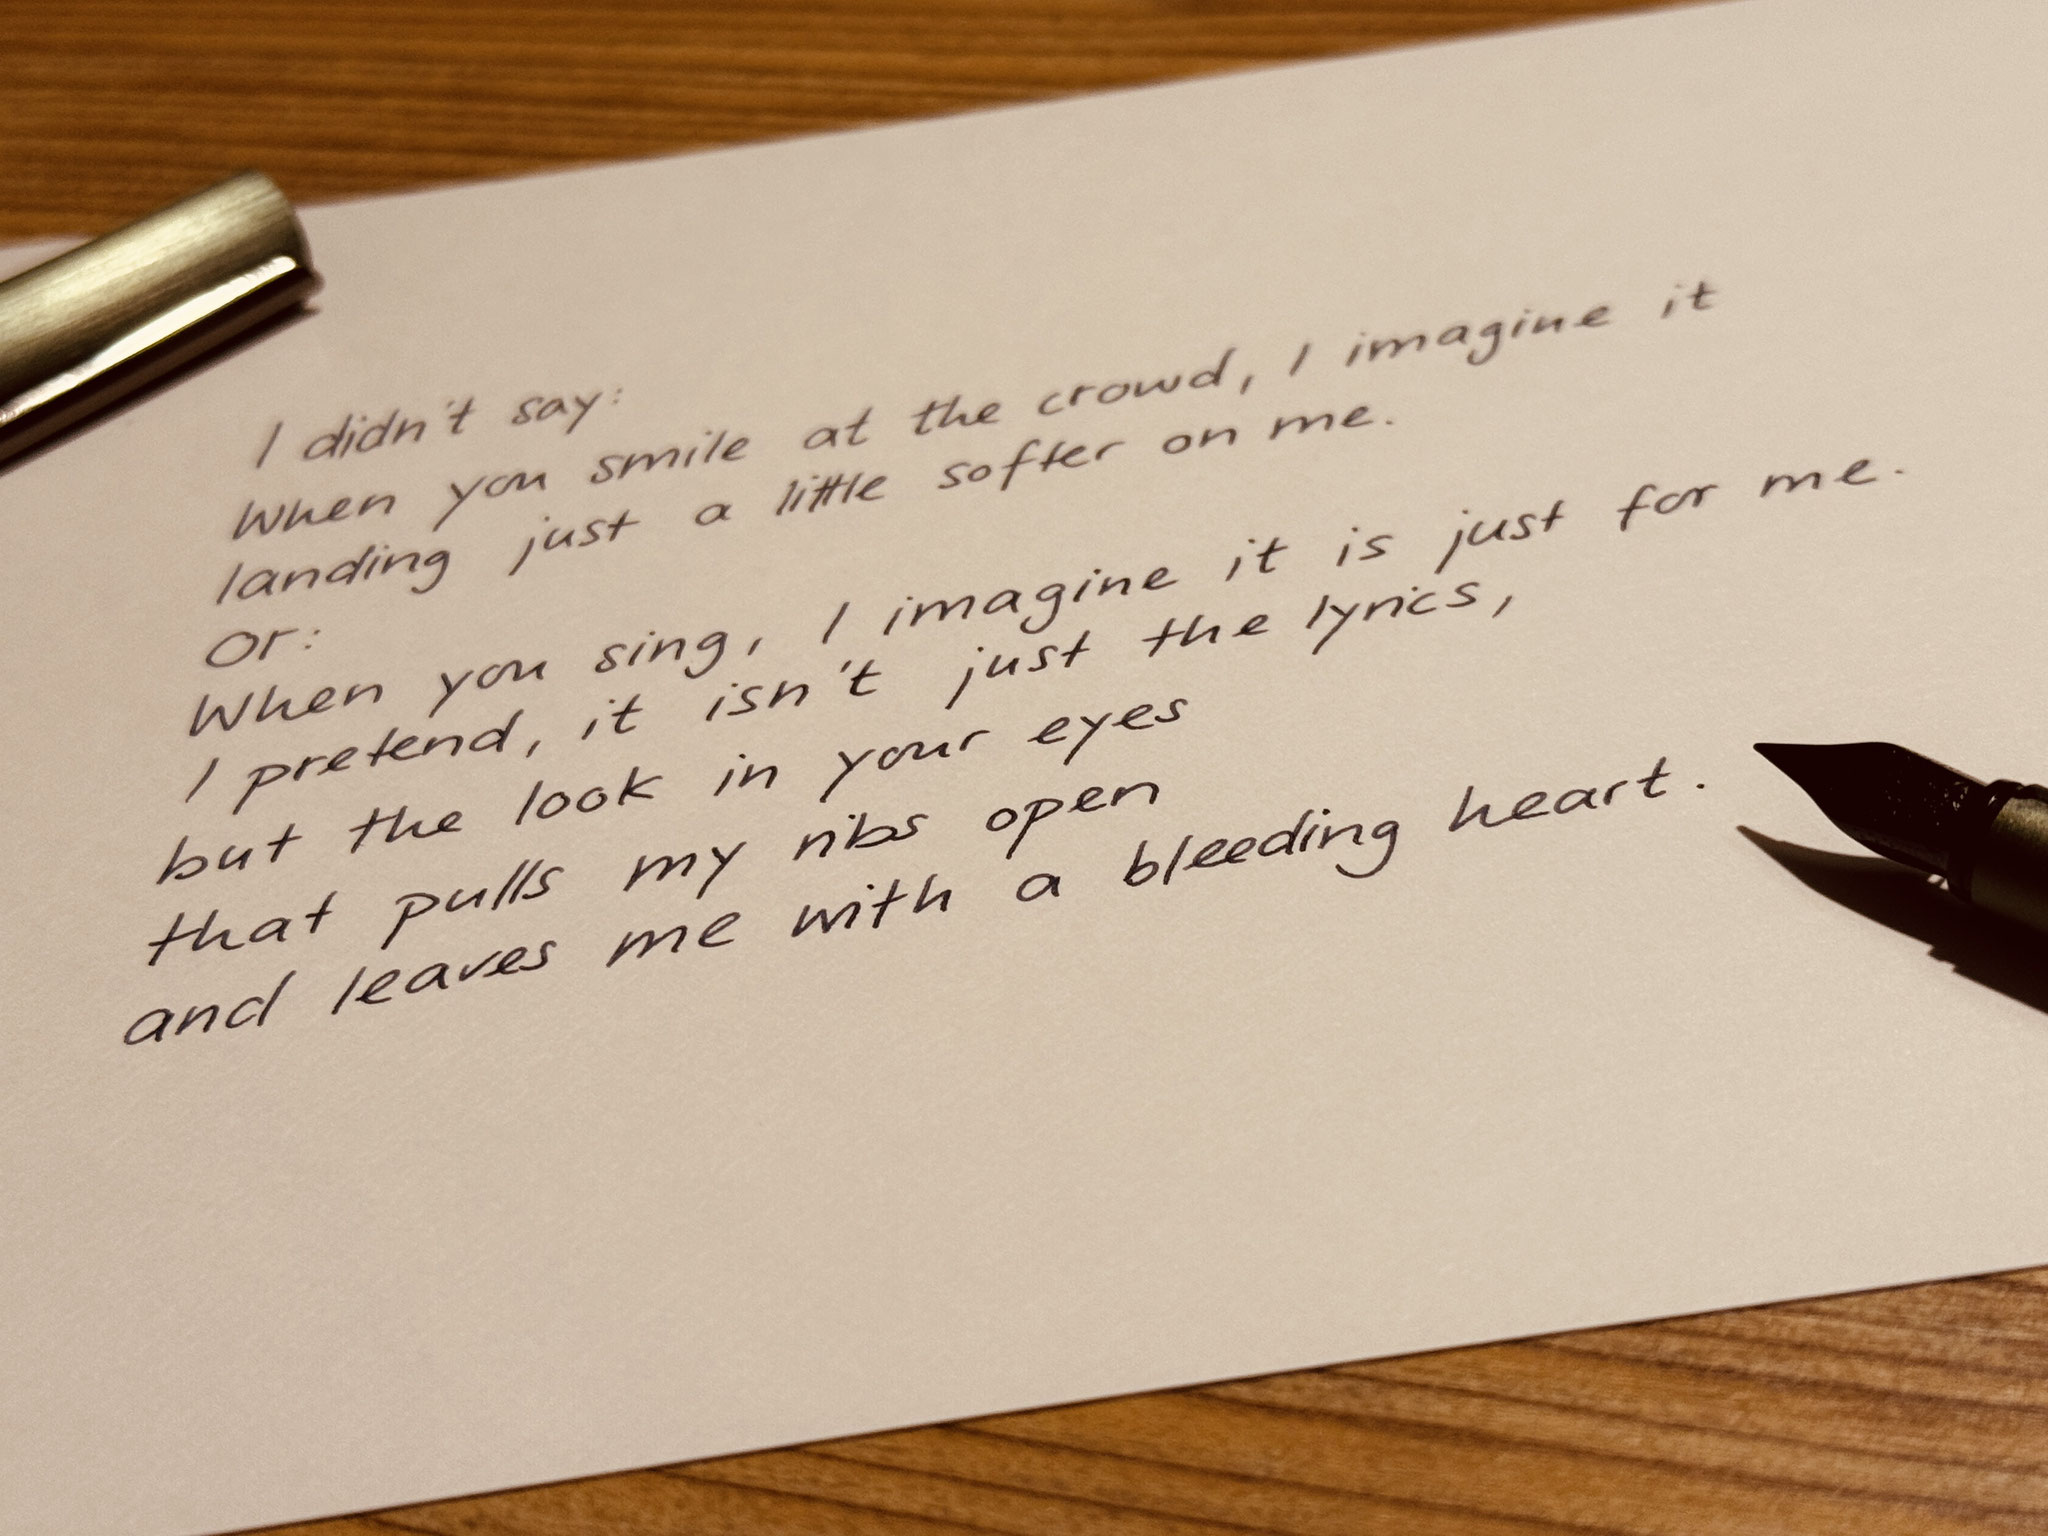 I didn't say:
When you smile at the crowd, I imagine it
landing just a little softer on me.
Or:
When you sing, I imagine it is just for me.
I pretend, it isn't just the lyrics,
but the look in your eyes
that pulls my ribs open
and leaves me with a bleeding heart.